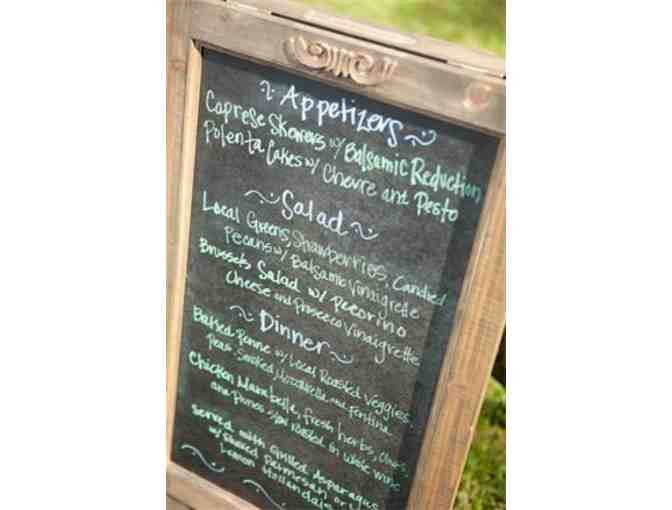 Appetizers
Caprese Skewers w/ Balsamic Reduction
Polenta Cakes w/ Chevre and Pesto
Salad
Local Greens, Strawberries, Candied
Pecans w/ Balsamic Vinaigrette
Brussels Salad w/ Pecorino
Cheese and Prosecco Vinaigrette
Dinner
Baked Penne w/ Local Roasted Veggies,
Peas, Smoked Mozzarella and Fontina
Chicken Marabella, fresh herbs, Olives,
and Prunes slow roasted in white wine
Served with Grilled Asparagus
w/ Shaved Parmesan or
Lemon Hollandaise